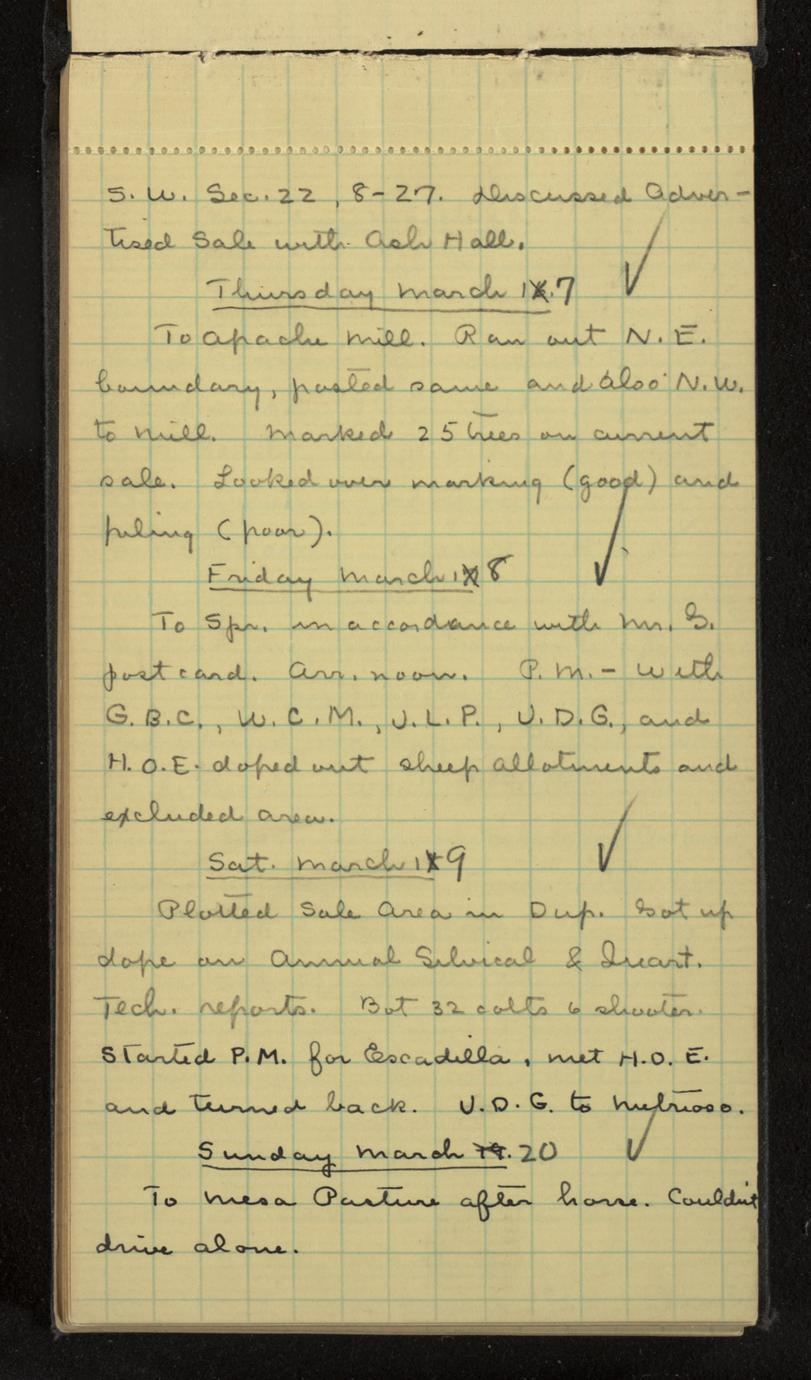 S. W. Sec. 22, 8-27. Discussed Adver-
tised Sale with Ash Hall.
Thursday March 17
To Apache Mill. Ran out N. E.
boundary, posted same and also N.W.
to Mill. Marked 25 trees on current
sale. Looked over marking (good) and
piling (poor).
Friday March 18
To Spr. in accordance with Mr. G.
postcard. Arr. noon. P.M. - With
G.B.C., W.C.M., J.L.P., J.D.G., and
H.O.E. doped out sheep allotments and
excluded area.
Sat. March 19
Plotted Sale Area in Dup. Got up
dope on Annual Silvical & Quart.
Tech. reports. Bot 32 colts 6 shooter.
Started P.M. for Escadilla, met H.O.E.
and turned back. J.D.G. to Nutrioso.
Sunday March 19. 20
To Mesa Pasture after horse. Couldn't
drive alone.